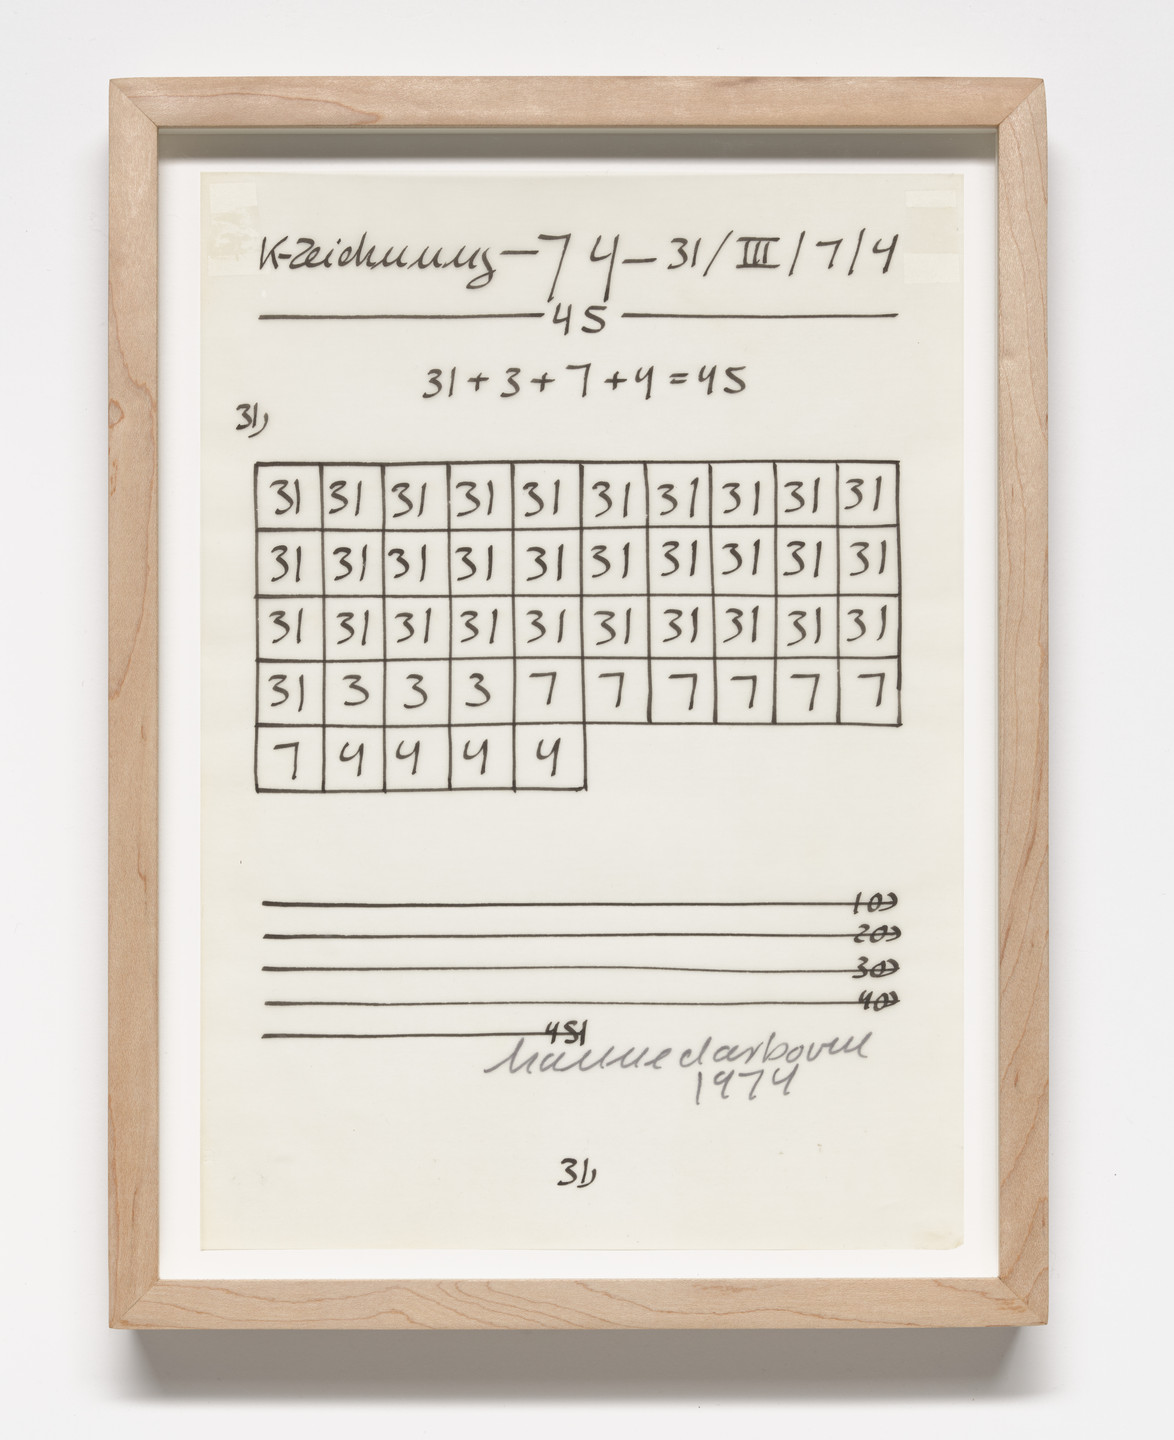 K-Zeichnung – 74 – 31/III/7/4
45
31+3+7+4=45
31)
31 31 31 31 31 31 31 31 31 31
31 31 31 31 31 31 31 31 31 31
31 31 31 31 31 31 31 31 31 31
31 3 3 3 7 7 7 7 7 7
7 4 4 4 4
10)
20)
30)
40)
45)
hanne darboven
1974
31)